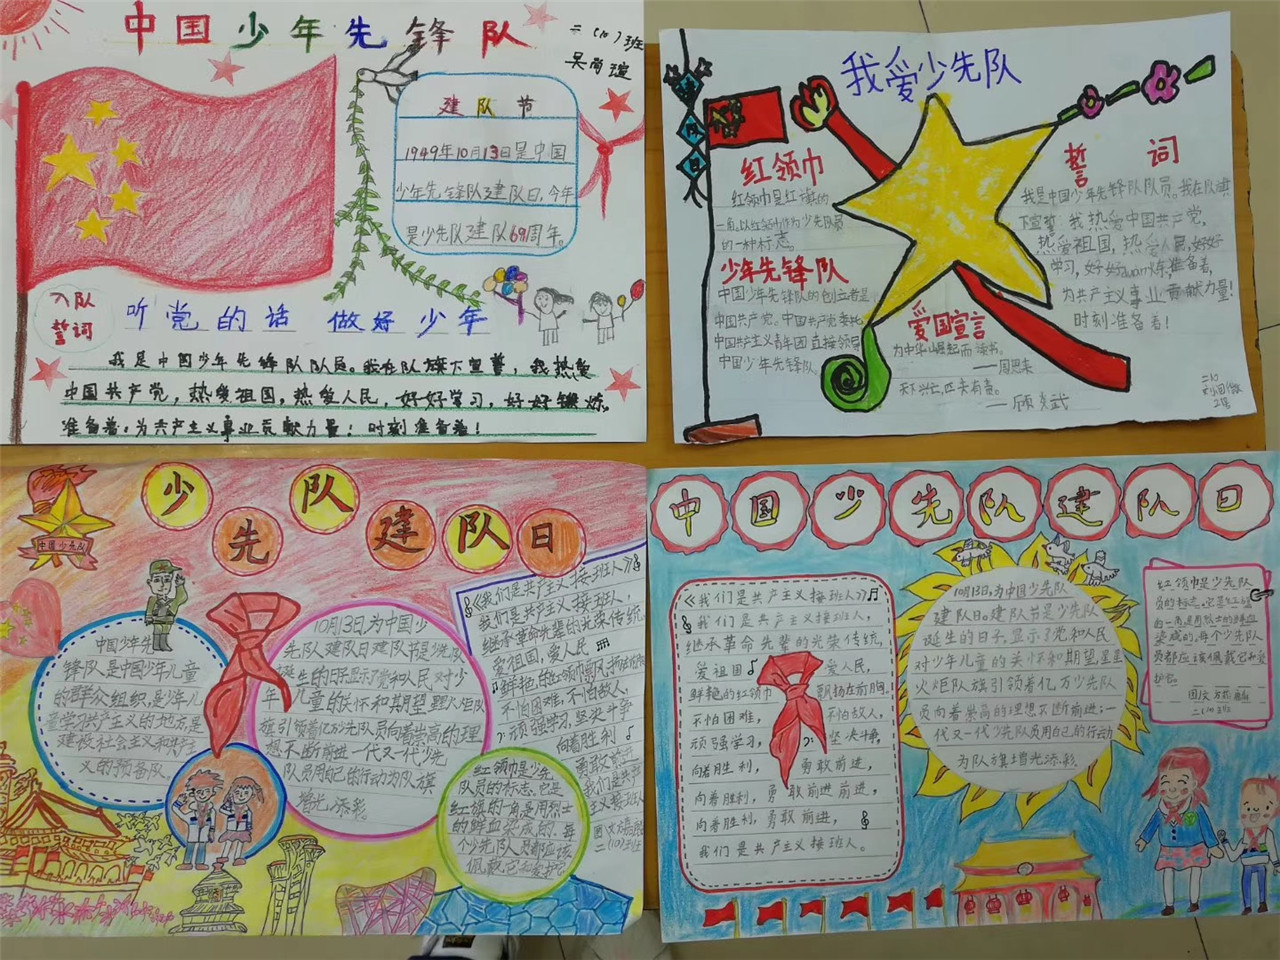 中国少年先锋队
二(10)班
吴尚瑄
建队节
1949年10月13日是中国
少年先锋队建队日,今年
是少先队建队69周年。
入队
誓词
听党的话 做好少年
我是中国少年先锋队队员。我在队旗下宣誓,我热爱
中国共产党,热爱祖国,热爱人民,好好学习,好好锻炼,
准备着:为共产主义事业贡献力量!时刻准备着!
我爱少先队
红领巾
红领巾是红旗的
一角,以红领巾作为少先队员
的一种标志。
少年先锋队
中国少年先锋队的创立者是
中国共产党。中国共产党委托
中国共产主义青年团直接领导
中国少年先锋队。
爱国宣言
为中华崛起而读书。
——周恩来
天下兴亡,匹夫有责。
——顾炎武
誓词
我是中国少年先锋队队员。我在队旗
下宣誓 我热爱中国共产党,
热爱祖国,热爱人民,好好
学习,好好duàn炼,准备着,
为共产主义事业贡献力量!
时刻准备着!
二10
少先队建队日
中国少先队
中国少年先
锋队是中国少年儿童
的群众组织,是少年儿
童学习共产主义的地方,是
建设社会主义和共产主
义的预备队。
10月13日,为中国少
先队建队日建队节是少先队
诞生的日子,显示了党和人民对少
年儿童的关怀和期望 星星火炬队
旗引领着亿万少先队员向着崇高的理
想不断前进一代又一代少先
队员用自己的行动为队旗
增光添彩。
《我们是共产主义接班人》
我们是共产主义接班人,
继承革命先辈的光荣传统,
爱祖国,爱人民,
鲜艳的红领巾飘扬在前胸
不怕困难,不怕敌人,
顽强学习,坚决斗争
向着胜利
勇敢前进
我们是共产
主义接班人
二(10)班
红领巾是少先
队员的标志,它是
红旗的一角是用烈士
的鲜血染成的,每
个少先队员都应该
佩戴它和爱护它
中国少先队建队日
《我们是共产主义接班人》
我们是共产主义接班人,
继承革命先辈的光荣传统,
爱祖国 爱人民,
鲜艳的红领巾 飘扬在前胸,
不怕困难, 不怕敌人,
顽强学习, 坚决斗争,
向着胜利, 勇敢前进,
向着胜利,勇敢前进前进,
向着胜利,勇敢前进,
我们是共产主义接班人。
10月13日,为中国少先队
建队日。建队节是少先队
诞生的日子,显示了党和人民
对少年儿童的关怀和期望,星星
火炬队旗引领着亿万少先队
员向着崇高的理想不断前进;一
代又一代少先队员用自己的行动
为队旗增光添彩
红领巾是少先队
员的标志,它是红旗
的一角是用烈士的鲜血
染成的,每个少先队
员都应该佩戴它和爱
护它。
二(10)班